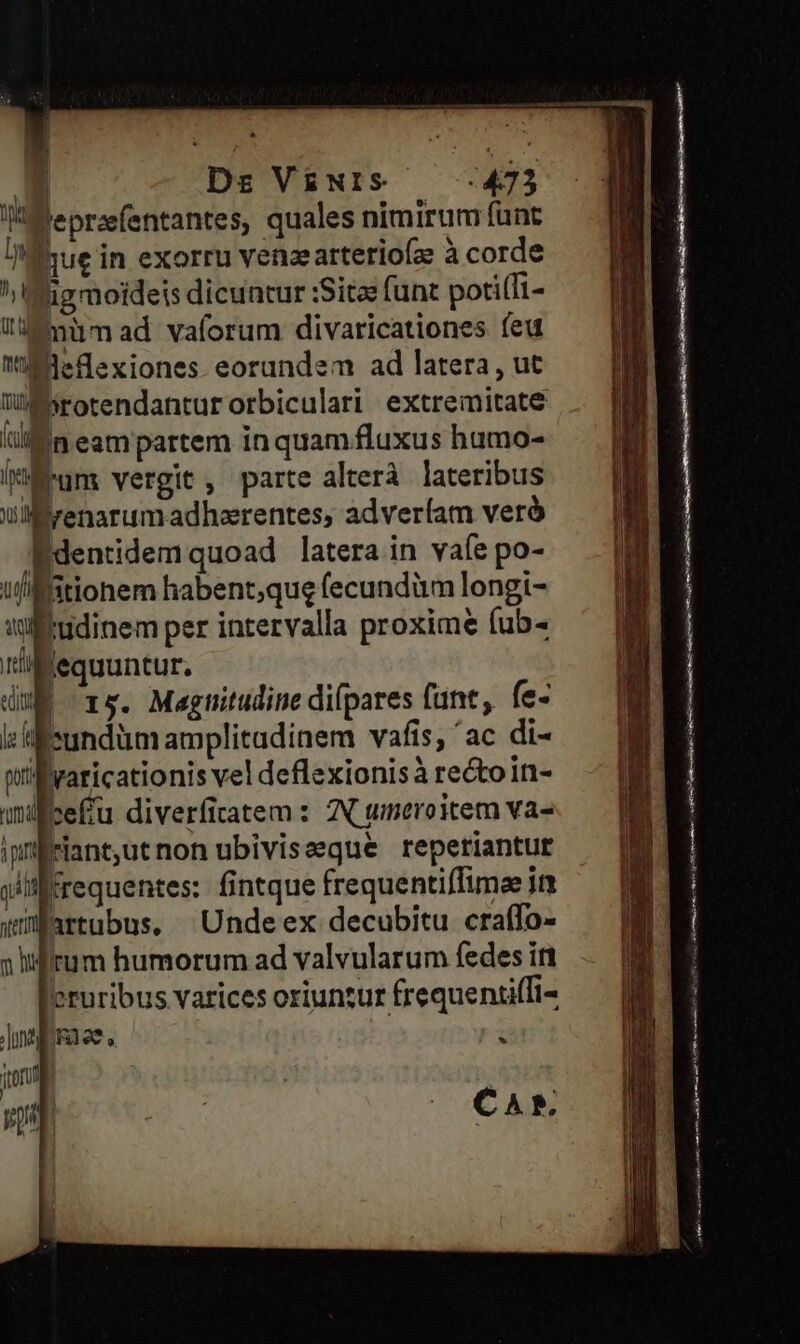 De Venis 473
repræſentantes, quales nimirum ſunt
que in exortu venæ arterioſæ à corde
ſigmoideis dicuntur : Sitæ ſunt potiſſi-
mùm ad vaſorum divaricationes ſeu
deflexiones eorundem ad latera, ut
protendantur orbiculari extremitate
in eam partem in quam fluxus humo-
rum vergit, parte alterâ lateribus
venarum adhærentes, adverſam verò
identidem quoad latera in vaſe po-
ſitionem habent, quę ſecundùm longi-
tudinem per intervalla proximè ſub-
ſequuntur.
15. Magnitudine diſpares ſunt, ſe-
cundùm amplitudinem vaſis, ac di-
varicationis vel deflexionis à recto in-
ceſſu diverſitatem : Numero item va-
riant, ut non ubivis æquè reperiantur
frequentes: ſintque frequentiſſimæ in
artubus. Unde ex decubitu craſſo-
rum humorum ad valvularum ſedes in
cruribus varices oriuntur frequentiſſi-
mæ.
Cap.